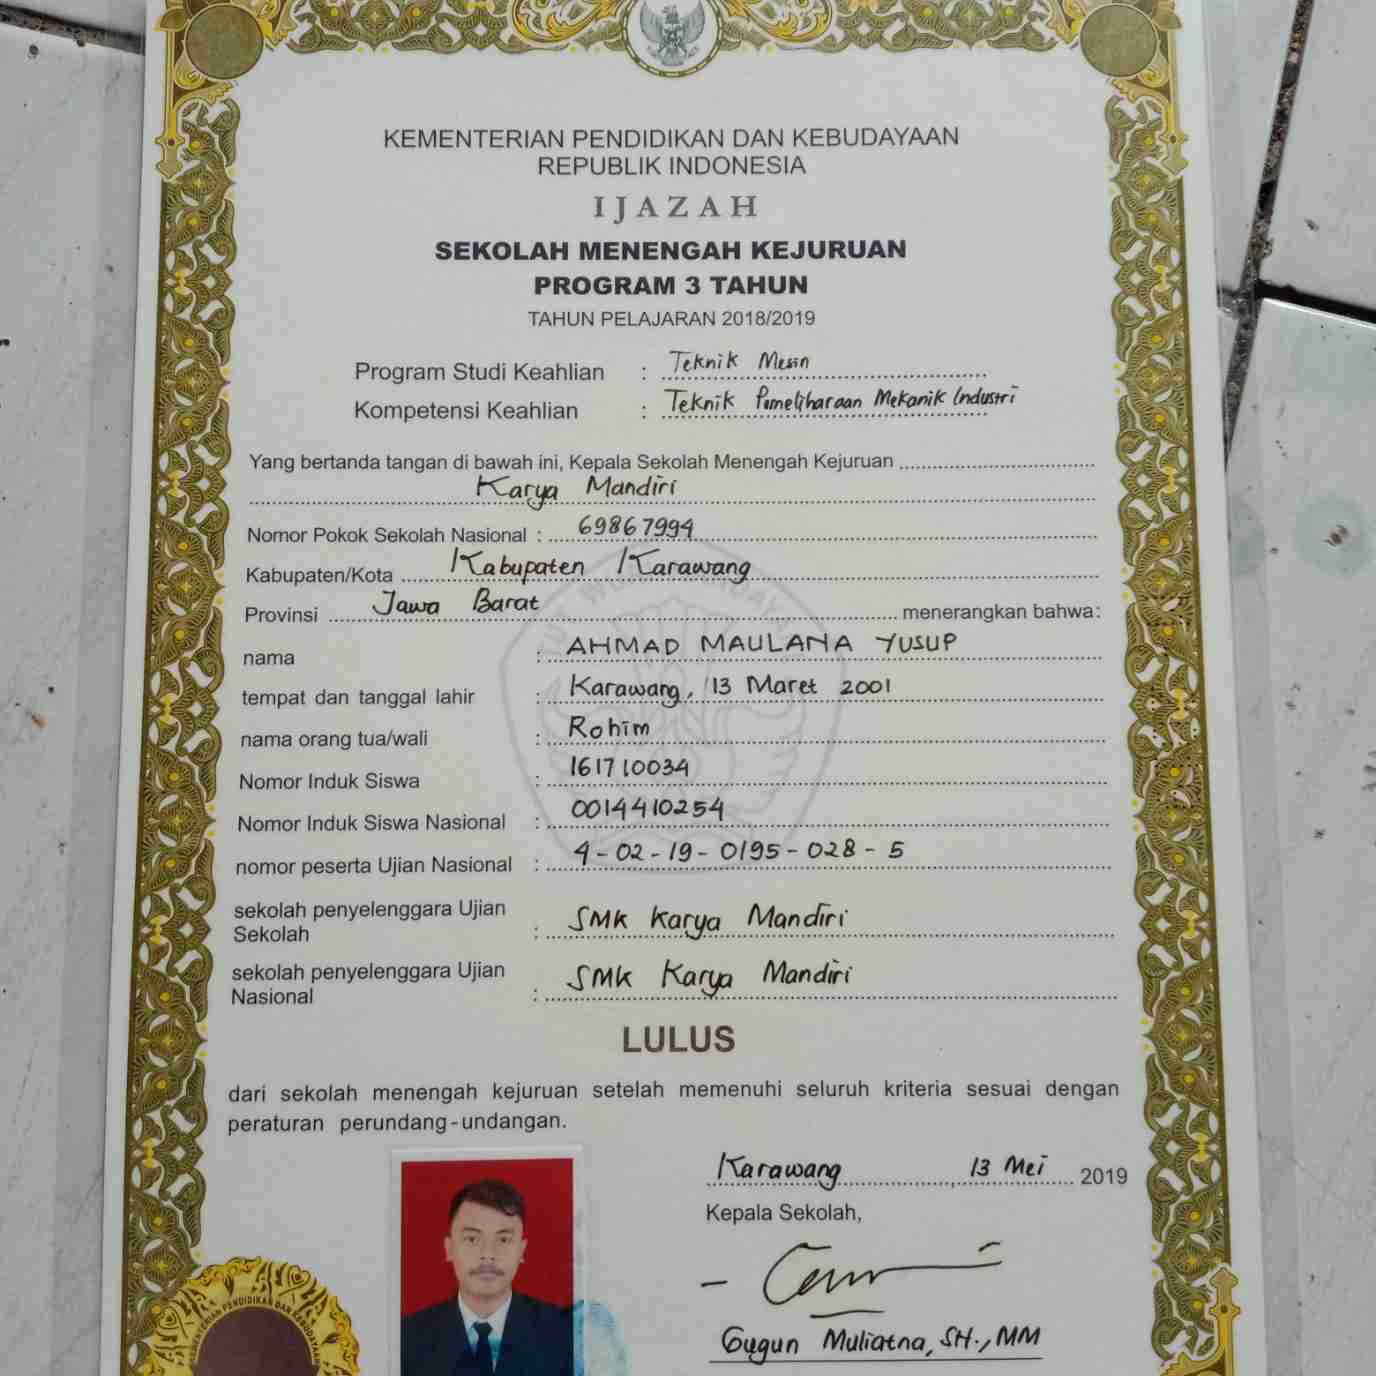 KEMENTERIAN PENDIDIKAN DAN KEBUDAYAAN
REPUBLIK INDONESIA
IJAZAH
SEKOLAH MENENGAH KEJURUAN
PROGRAM 3 TAHUN
TAHUN PELAJARAN 2018/2019
Program Studi Keahlian : Teknik Mesin
Kompetensi Keahlian : Teknik Pemeliharaan Mekanik Industri
Yang bertanda tangan di bawah ini, Kepala Sekolah Menengah Kejuruan
Karya Mandiri
Nomor Pokok Sekolah Nasional : 69867994
Kabupaten/Kota Kabupaten Karawang
Provinsi Jawa Barat menerangkan bahwa:
nama : AHMAD MAULANA YUSUP
tempat dan tanggal lahir : Karawang, 13 Maret 2001
nama orang tua/wali : Rohim
Nomor Induk Siswa : 161710034
Nomor Induk Siswa Nasional : 0014410254
nomor peserta Ujian Nasional : 4-02-19-0195-028-5
sekolah penyelenggara Ujian
Sekolah : SMK Karya Mandiri
sekolah penyelenggara Ujian
Nasional : SMK Karya Mandiri
LULUS
dari sekolah menengah kejuruan setelah memenuhi seluruh kriteria sesuai dengan
peraturan perundang-undangan.
Karawang, 13 Mei 2019
Kepala Sekolah,
Gugun Muliatna, SH., MM
KEMENTERIAN PENDIDIKAN DAN KEBUDAYAAN